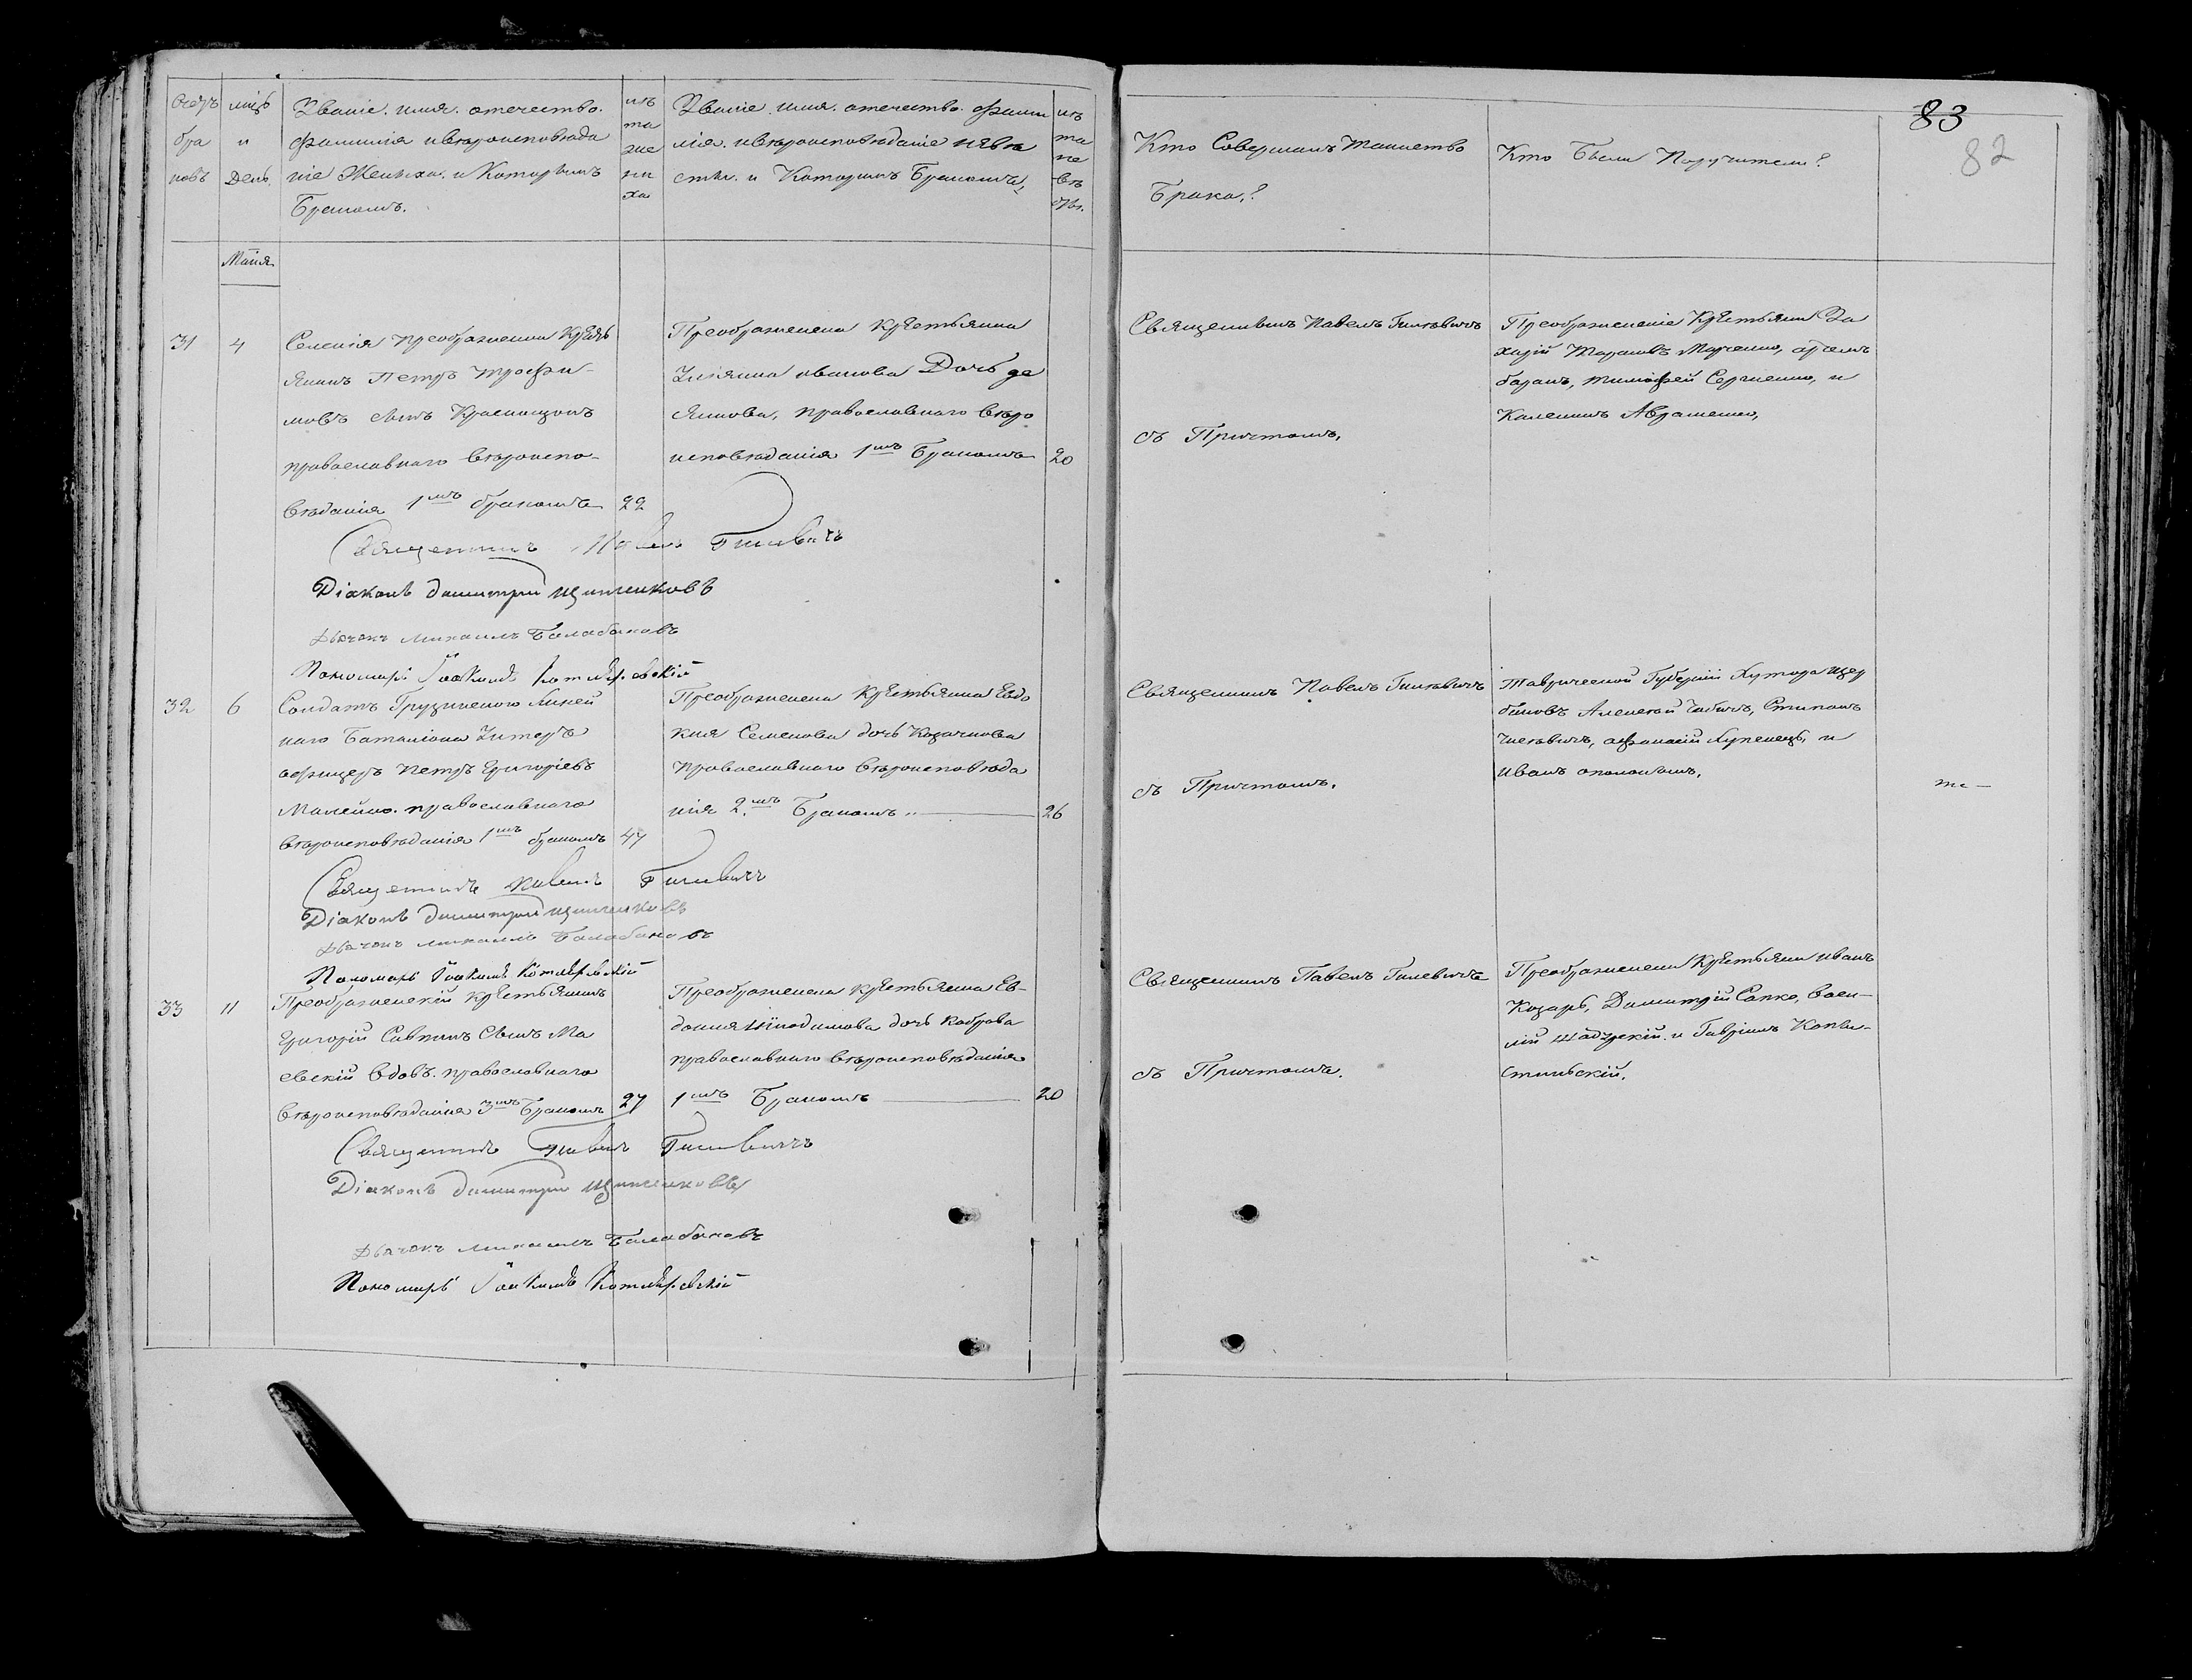 83
82
Счетъ браковъ
мцъ и День
Званіе. имя. отечество.
фамилія и вѣроисповѣда
ніе Жениха. и Которымъ
Бракомъ.
лѣта жениха
Званіе имя. отечество. фами
лія. и вѣроисповѣданіе невѣ
сты. и Которымъ Бракомъ,
лѣта невѣсты.
Кто Совершалъ Таинство
Брака,?
Кто Были Поручители?
Маія
31
4
Селенія Преображенки Крѣсть
янинъ Петръ Трофи-
мовъ сынъ
православнаго вѣроиспо-
вѣданія 1мъ бракомъ 22
Преображенки Крѣстьянка
Иванова Дочь де
православнаго вѣро
исповѣданія 1мъ Бракомъ 20
Священникъ Павелъ Гилевичъ
съ Причтомъ,
Преображенскіе Крѣстьяни За
харій Марченко,
баранъ, Тимофей Сергиенко, и
Авраменко,
Священникъ Павелъ Гилевичъ
Діаконъ Димитрій
Дьячокъ Михаилъ Балабановъ
Пономарь Іоакимъ Котляревскій
32
6
Солдатъ Грузинского Линей
наго Баталіона Унтеръ
офицеръ Петръ Григоріевъ
Малейко. православнаго
вѣроисповѣданія 1мъ бракомъ 47
Преображенки Крѣстьянка Евдо
кия Семенова дочь Козачкова
Православнаго вѣроисповѣда
нія 2.мъ Бракомъ 26
Священникъ Павелъ Гилевичъ
съ Причтомъ.
Таврической Губерніи Хутора Щер
биновъ Алексѣй
и
Иванъ
Священникъ Павелъ Гилевичъ
Діаконъ Димитрій
Дьячокъ Михаилъ Балабановъ
Пономарь Іоакимъ Котляревскій
33
11
Преображенскій Крѣстьянинъ
Григорій Савинъ Сынъ Ма
евскій вдовъ. православнаго
вѣроисповѣданія 3мъ Бракомъ 27
Преображенки Крѣстьянка Ев-
докия Никодимова дочь
православнаго вѣроисповѣданія
1мъ Бракомъ 20
Священникъ Павелъ Гилевичъ
съ Причтомъ.
Преображенски Крѣстьяни иванъ
Козарь, Димитрій Сапко, васи-
лій и Гавріилъ
Священникъ Павелъ Гилевичъ
Діаконъ Димитрій
Дьячокъ Михаилъ Балабановъ
Пономарь Іоакимъ Котляревскій